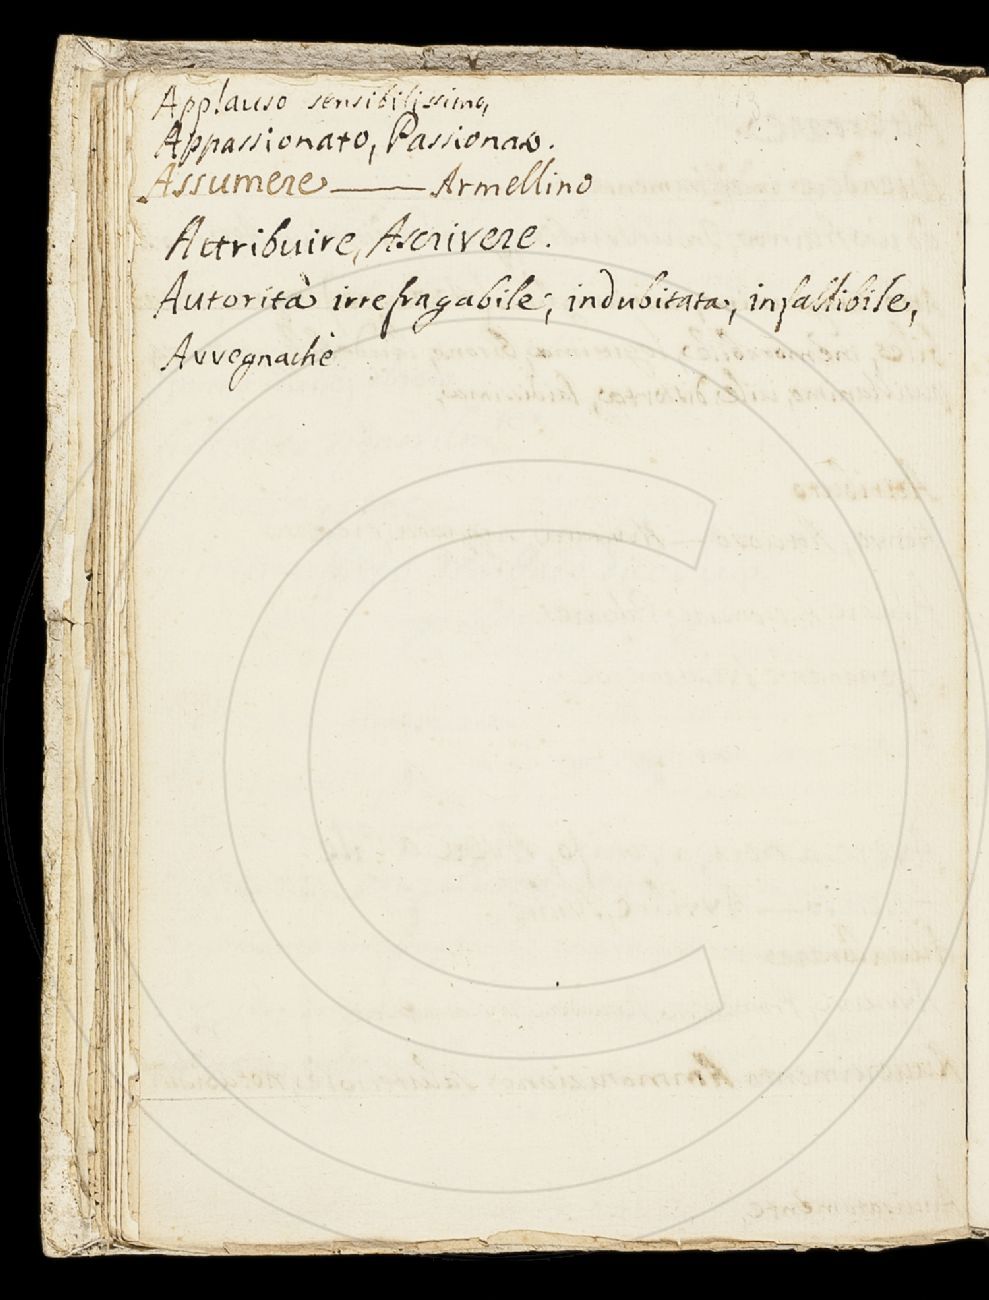 Applauso sensibilissimo,
Appassionato, Passionato.
Assumere — Armellino
Attribuire, Ascrivere.
Autorità irrefragabile, indubitata, infallibile,
Avvegnachè